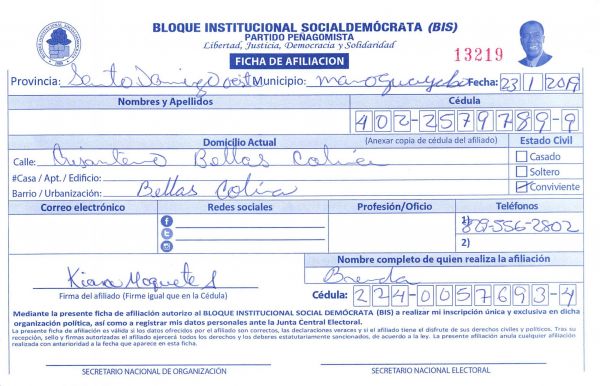 BLOQUE INSTITUCIONAL SOCIALDEMÓCRATA (BIS)
PARTIDO PEÑAGOMISTA
Libertad, Justicia, Democracia y Solidaridad
FICHA DE AFILIACION
13219
Provincia: Santo Domingo oeste Municipio: manoguayabo Fecha: 23 1 2019
Nombres y Apellidos Cédula
402-2579789-9
Domicilio Actual (Anexar copia de cédula del afiliado) Estado Civil
Calle: Crisantemo Bellas Colina Casado
#Casa / Apt. / Edificio: Soltero
Barrio / Urbanización: Bellas Colina Conviviente
Correo electrónico Redes sociales Profesión/Oficio Teléfonos
1) 829-556-2802
2)
Nombre completo de quien realiza la afiliación
Kiara Moquete S Brenda
Firma del afiliado (Firme igual que en la Cédula) Cédula: 224-0057693-4
Mediante la presente ficha de afiliación autorizo al BLOQUE INSTITUCIONAL SOCIAL DEMÓCRATA (BIS) a realizar mi inscripción única y exclusiva en dicha
organización política, así como a registrar mis datos personales ante la Junta Central Electoral.
La presente ficha de afiliación es válida si los datos ofrecidos por el afiliado son correctos, las declaraciones veraces y si el afiliado tiene el disfrute de sus derechos civiles y políticos. Tras su
recepción, sello y firmas autorizadas el afiliado ejercerá todos los derechos y los deberes estatutariamente sancionados, de acuerdo a la ley. La presente afiliación anula cualquier afiliación
realizada con anterioridad a la fecha que aparece en esta ficha.
SECRETARIO NACIONAL DE ORGANIZACIÓN SECRETARIO NACIONAL ELECTORAL